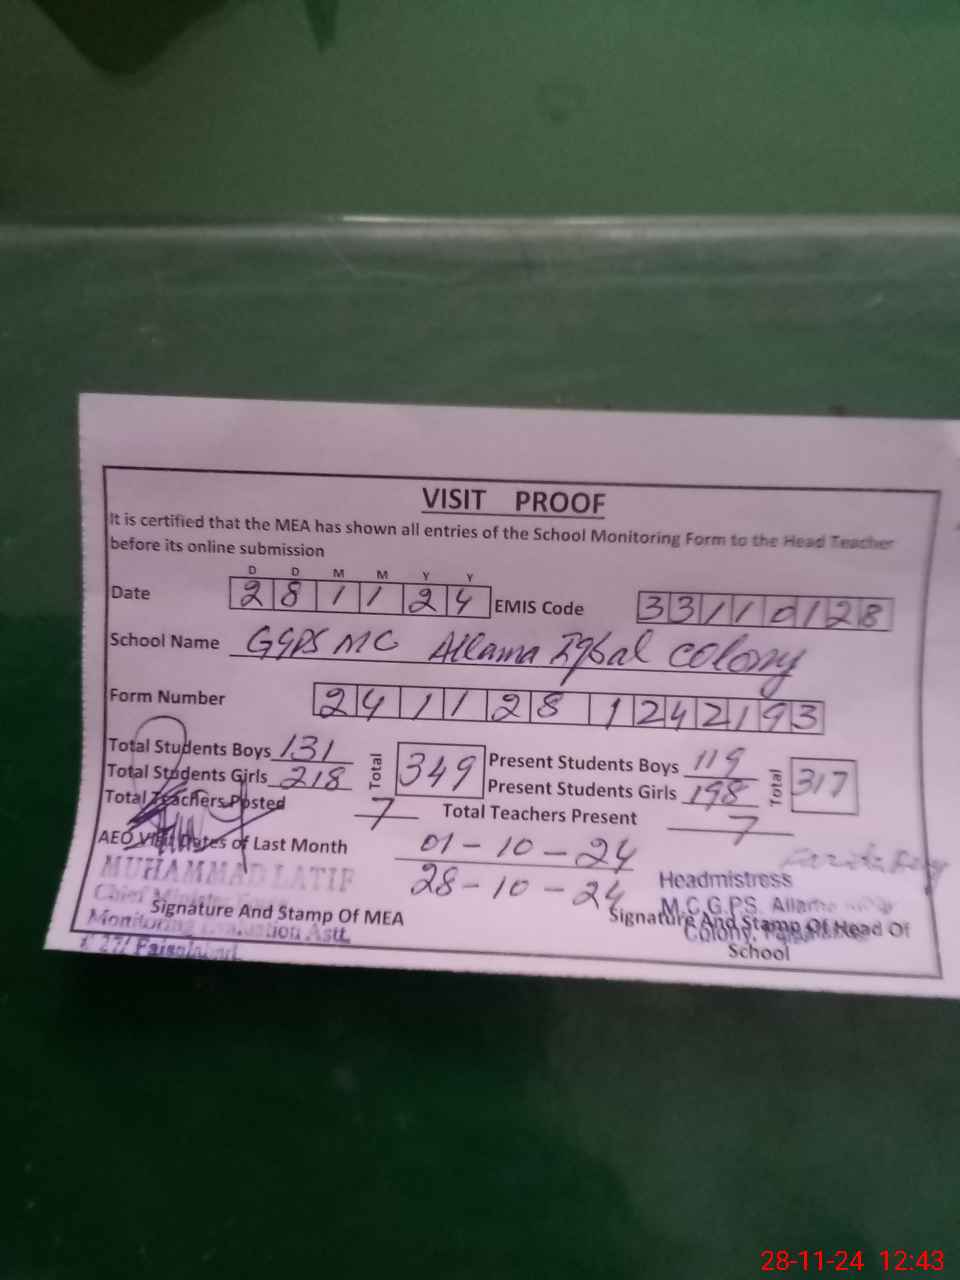 VISIT PROOF
It is certified that the MEA has shown all entries of the School Monitoring Form to the Head Teacher
before its online submission
D D M M Y Y
Date 2 8 1 1 2 4 EMIS Code 3 3 1 1 0 1 2 8
School Name GGPS MC Allama Iqbal Colony
Form Number 2 4 1 1 2 8 1 2 4 2 1 9 3
Total Students Boys 131 Total 349 Present Students Boys 119 Total 317
Total Students Girls 218 Present Students Girls 198
Total Teachers Posted 7 Total Teachers Present 7
AEO Visit Dates of Last Month 01-10-24
28-10-24
MUHAMMAD LATIF
Chief Minister
Monitoring Evaluation Astt.
Faisalabad
Signature And Stamp Of MEA
Headmistress
M.C.G.P.S. Allama
Colony,
Signature And Stamp Of Head Of
School
28-11-24 12:43